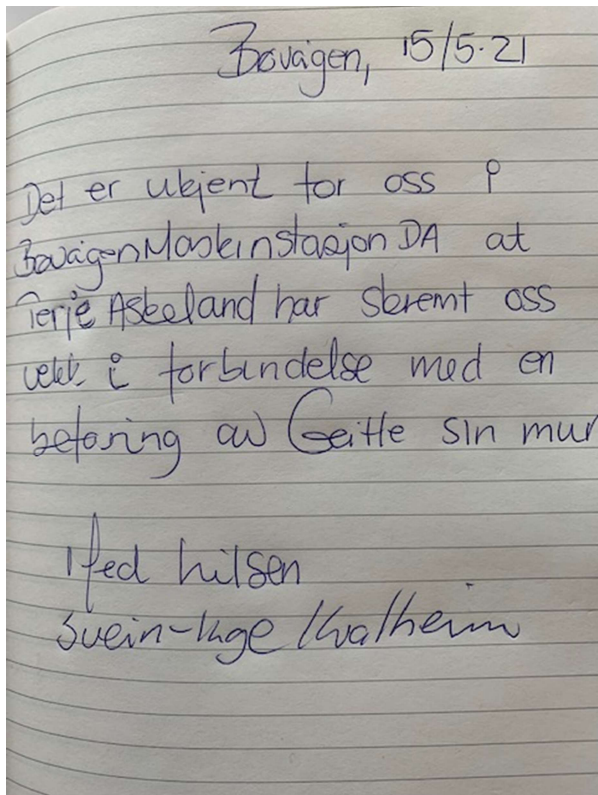 Bøvågen, 15/5-21
Det er ukjent for oss i
Bøvågen Maskinstasjon DA at
Terje Askeland har skremt oss
vekk i forbindelse med en
befaring av Geitle sin mur
Med hilsen
Svein-Inge Kvalheim